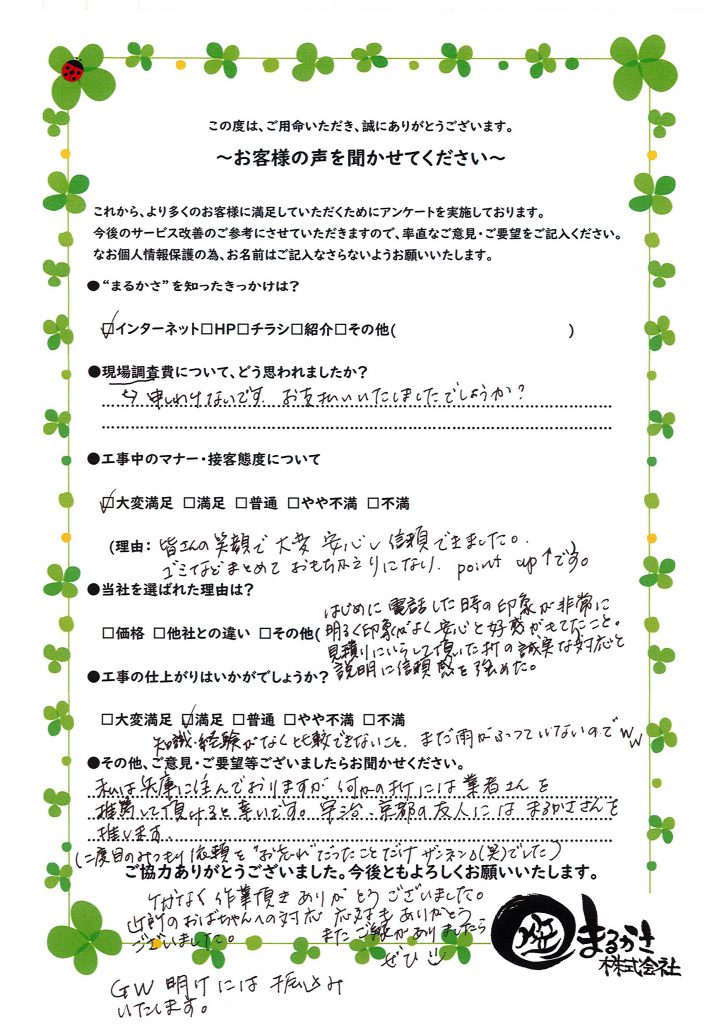 この度は、ご用命いただき、誠にありがとうございます。
～お客様の声を聞かせてください～
これから、より多くのお客様に満足していただくためにアンケートを実施しております。
今後のサービス改善のご参考にさせていただきますので、率直なご意見・ご要望をご記入ください。
なお個人情報保護の為、お名前はご記入なさらないようお願いいたします。
●“まるかさ”を知ったきっかけは？
☑インターネット□HP□チラシ□紹介□その他( )
●現場調査費について、どう思われましたか？
↳ 申しわけないです. お支払いいたしましたでしょうか?
●工事中のマナー・接客態度について
☑大変満足 □満足 □普通 □やや不満 □不満
(理由: 皆さんの笑顔で大変安心し信頼できました。
ゴミなどまとめておもちかえりになり. point up↑です。
●当社を選ばれた理由は？
□価格 □他社との違い □その他(
はじめに電話した時の印象が非常に
明るく印象がよく安心と好感がもてたこと。
見積りにいらして頂いた折の誠実な対応と
説明に信頼感を強めた。
●工事の仕上がりはいかがでしょうか？
□大変満足 ☑満足 □普通 □やや不満 □不満
知識・経験がなく比較できないこと. まだ雨がふっていないのでww
●その他、ご意見・ご要望等ございましたらお聞かせください。
私は兵庫に住んでおりますが何かの折には業者さんを
推薦して頂けると幸いです。宇治・京都の友人にはまるかささんを
推します.
(二度目のみつもり依頼を“お忘れ”だったことだけザンネン♪(笑)でした)
ご協力ありがとうございました。今後ともよろしくお願いいたします。
作業頂きありがとうございました。
近所のおばちゃんへの対応 ありがとう
ございました。
またご縁がありましたら
ぜひ
まるかさ
株式会社
GW明けには振込み
いたします。